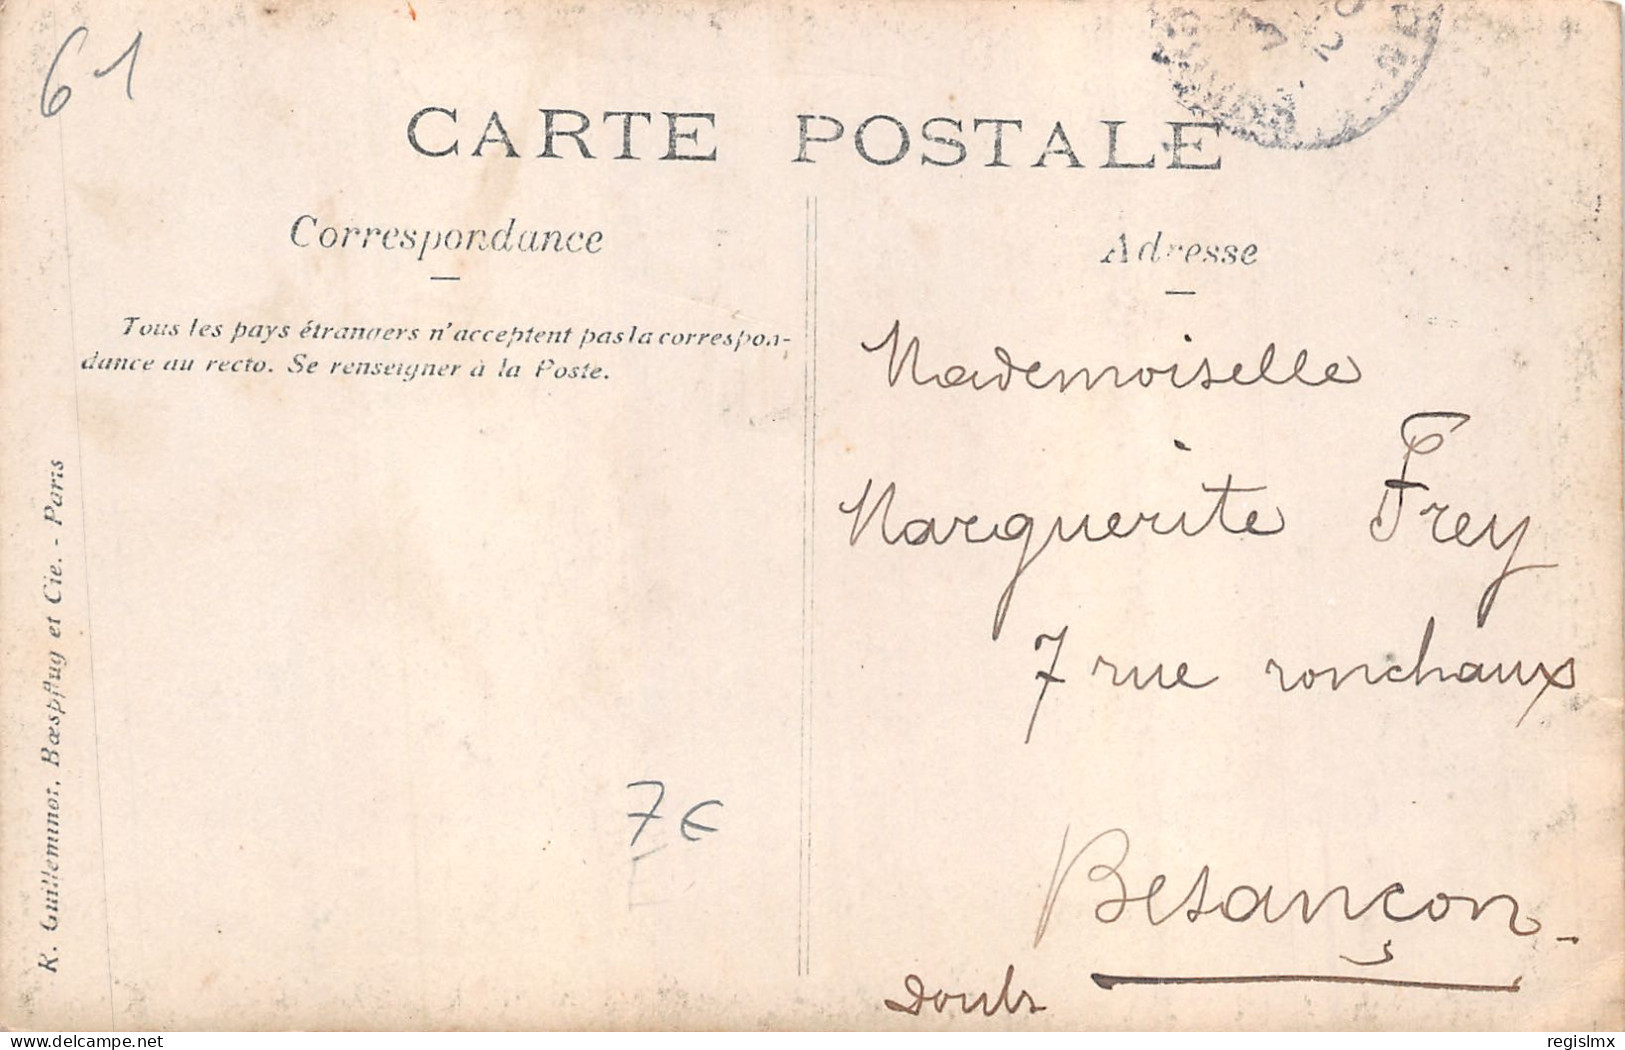 61
CARTE POSTALE
Correspondance
Tous les pays étrangers n'acceptent pas la correspon-
dance au recto. Se renseigner à la Poste.
R. Guilleminot, Bœspflug et Cie. - Paris
7€
Adresse
Mademoiselle
Marguerite Frey
7 rue ronchaux
Besançon -
Doubs
delcampe.net
regislmx